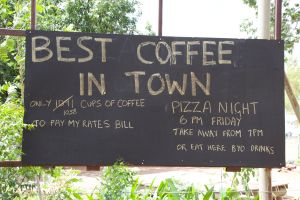 BEST COFFEE
IN TOWN
ONLY 1071 CUPS OF COFFEE
1058
TO PAY MY RATES BILL
PIZZA NIGHT
6 PM FRIDAY
TAKE AWAY FROM 7PM
OR EAT HERE BYO DRINKS